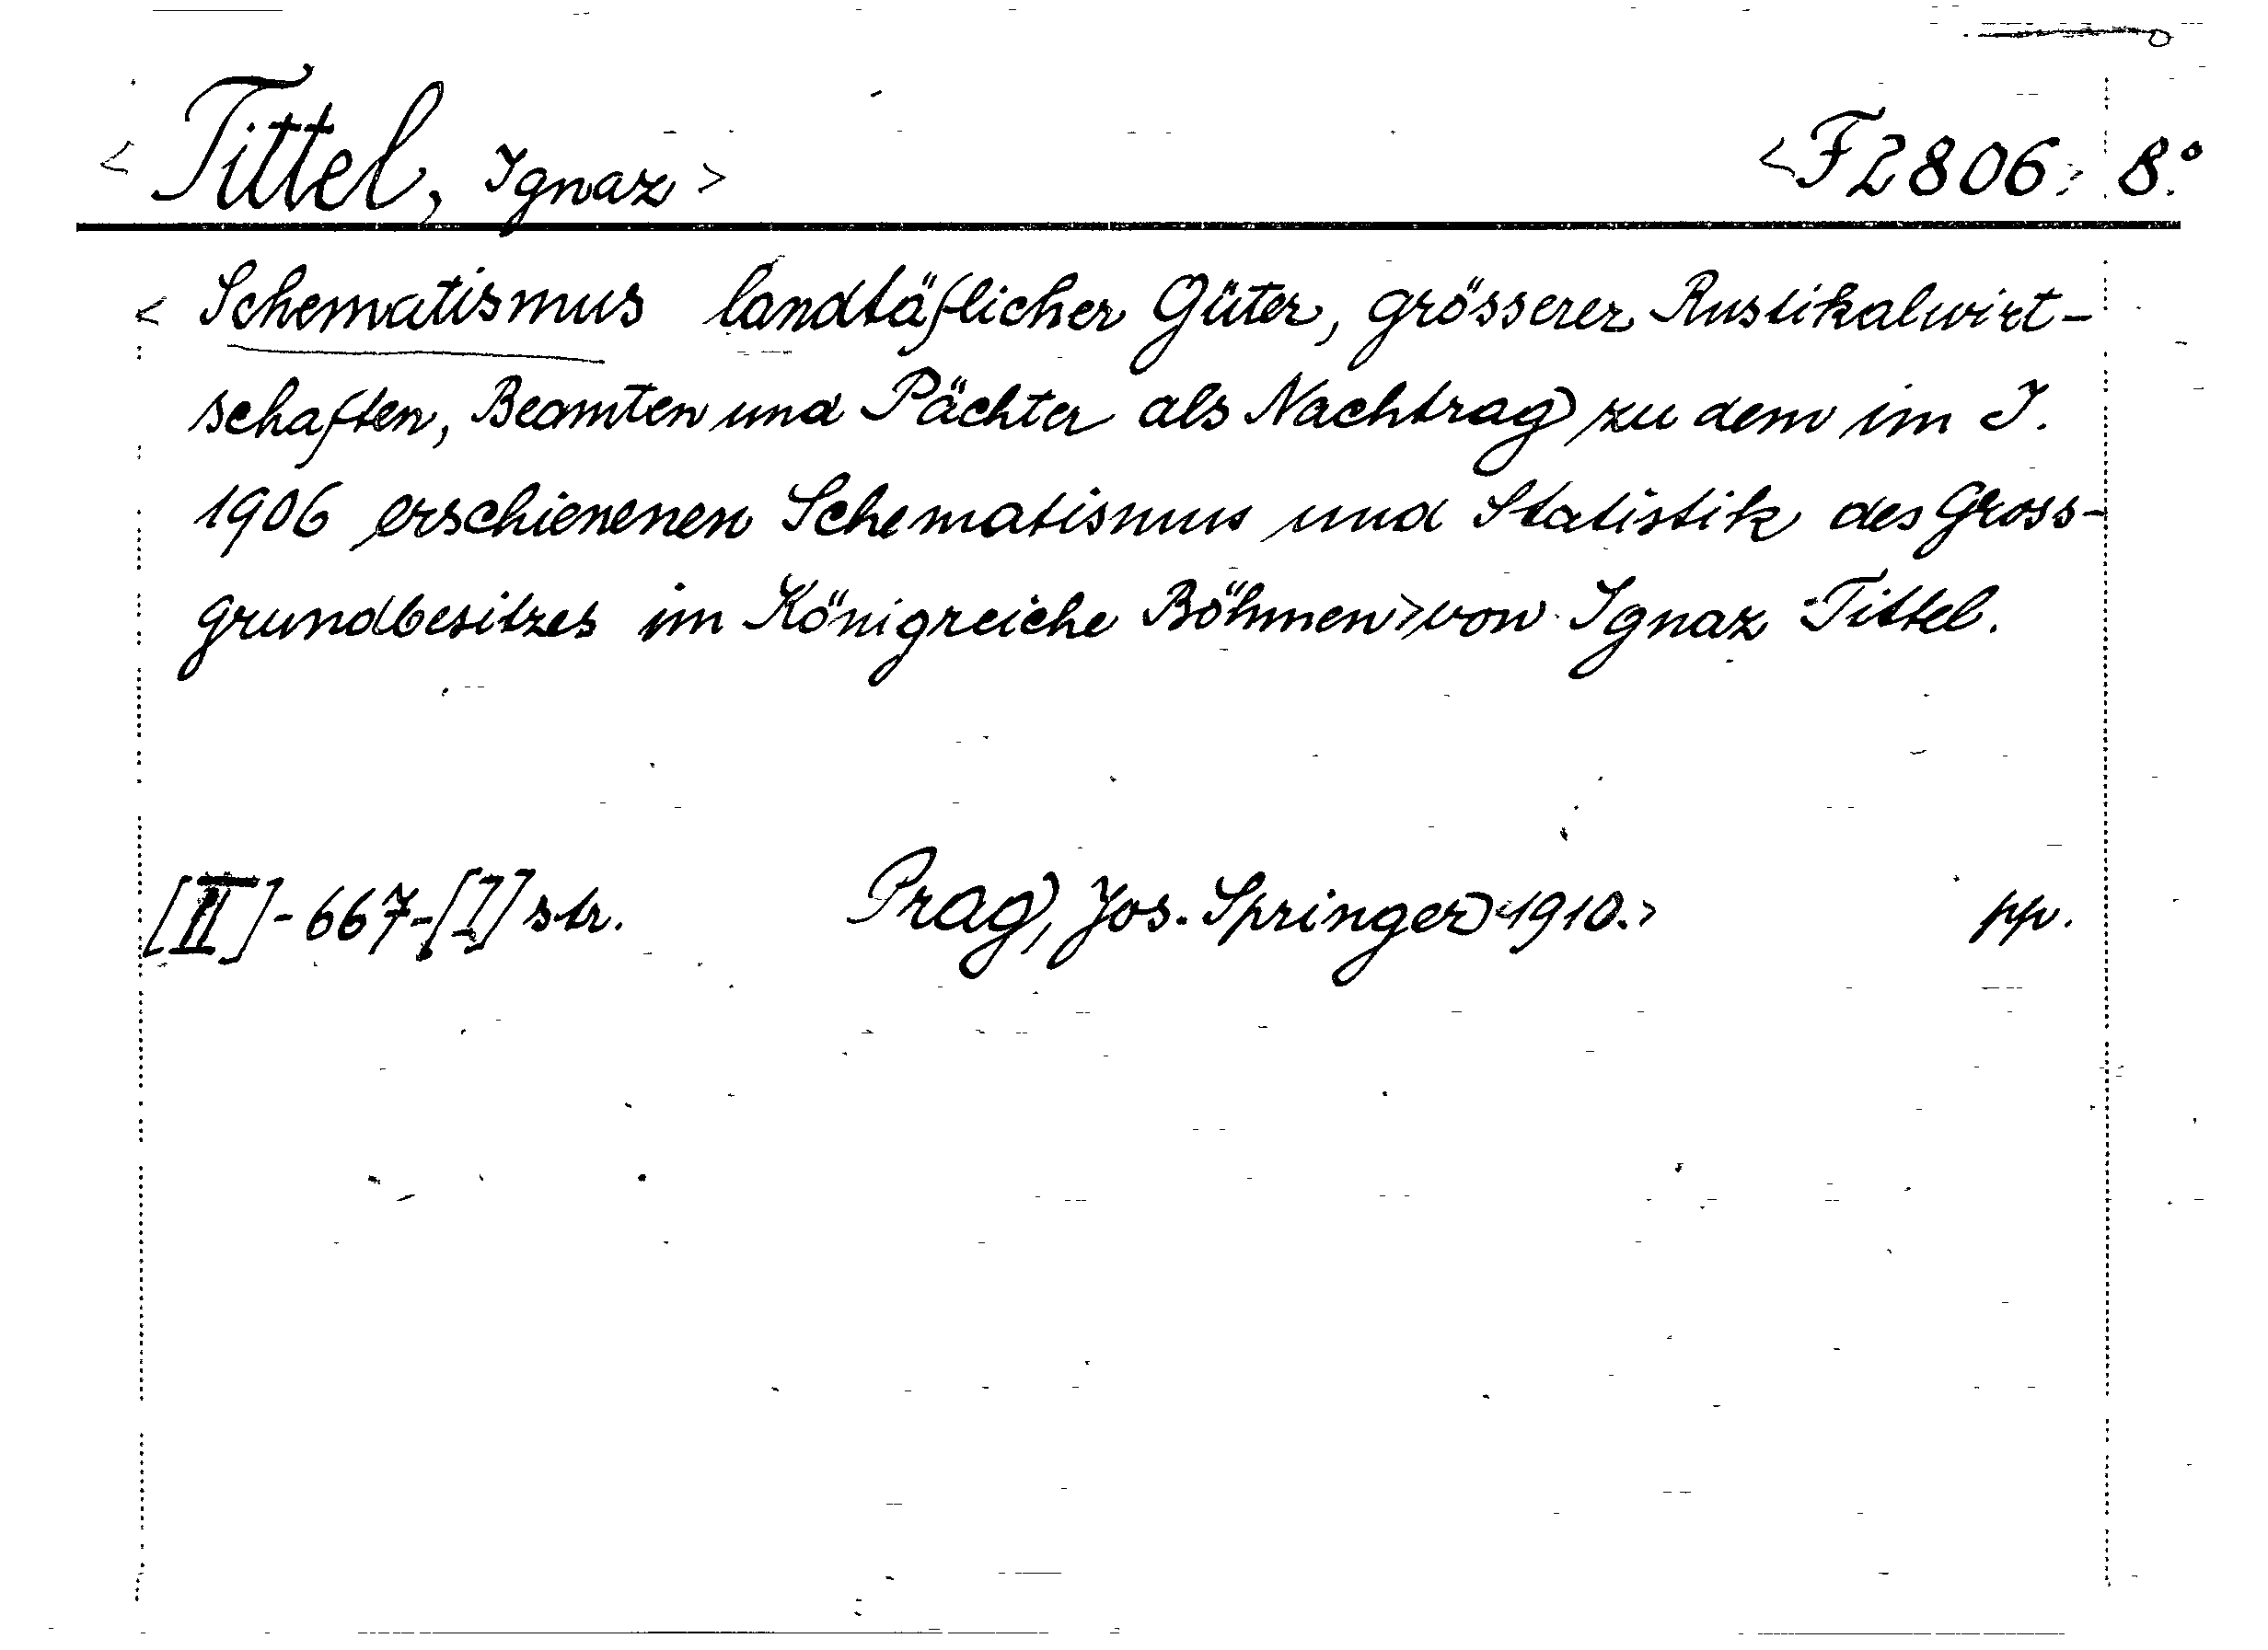 < Tittel, Ignaz > <F 2806> 8.°
< Schematismus landtäflicher Güter, grösserer Rustikalwirt-
schaften, Beamten und Pächter als Nachtrag zu dem im J.
1906 erschienenen Schematismus und Statistik des Gross-
grundbesitzes im Königreiche Böhmen> von Ignaz Tittel.
[II]-667-[I] str. Prag, Jos. Springer <1910.> pp.